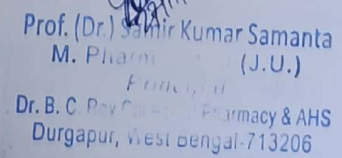 Prof. (Dr.) Samir Kumar Samanta
M. Pharm (J.U.)
Principal
Dr. B. C. Roy Pharmacy & AHS
Durgapur, West Bengal-713206